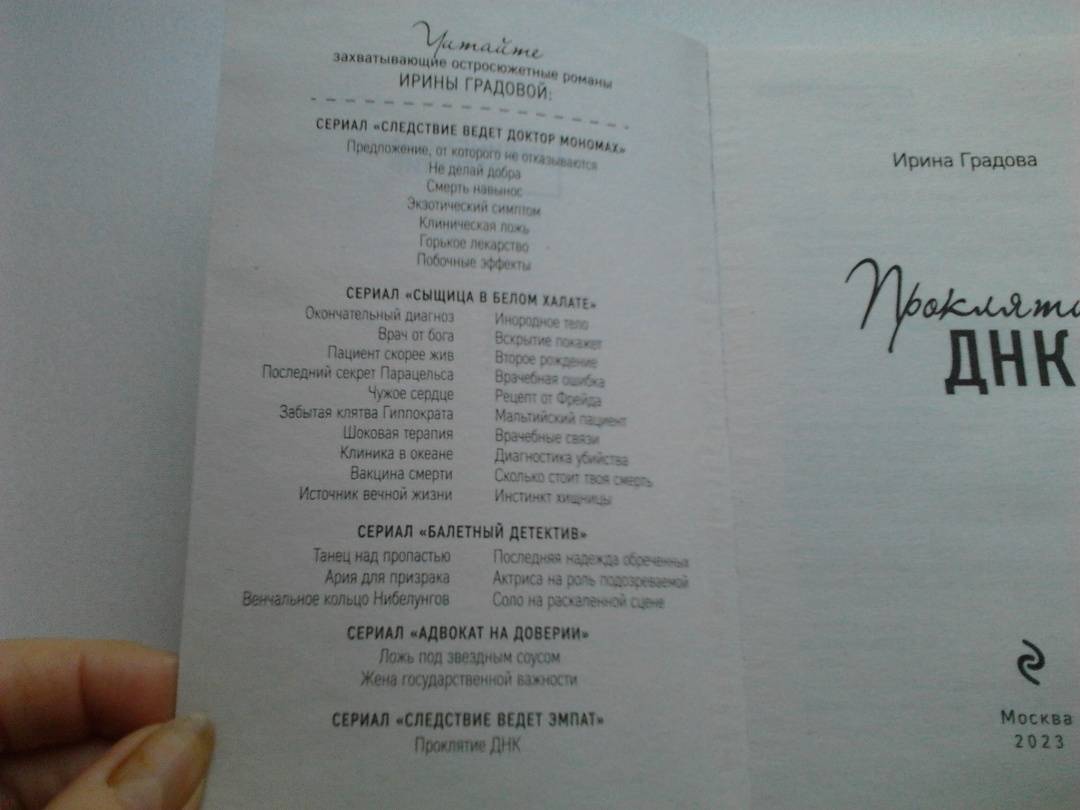 Читайте
захватывающие остросюжетные романы
ИРИНЫ ГРАДОВОЙ:
СЕРИАЛ «СЛЕДСТВИЕ ВЕДЕТ ДОКТОР МОНОМАХ»
Предложение, от которого не отказываются
Не делай добра
Смерть навынос
Экзотический симптом
Клиническая ложь
Горькое лекарство
Побочные эффекты
СЕРИАЛ «СЫЩИЦА В БЕЛОМ ХАЛАТЕ»
Окончательный диагноз
Врач от бога
Пациент скорее жив
Последний секрет Парацельса
Чужое сердце
Забытая клятва Гиппократа
Шоковая терапия
Клиника в океане
Вакцина смерти
Источник вечной жизни
Инородное тело
Вскрытие покажет
Второе рождение
Врачебная ошибка
Рецепт от Фрейда
Мальтийский пациент
Врачебные связи
Диагностика убийства
Сколько стоит твоя смерть
Инстинкт хищницы
СЕРИАЛ «БАЛЕТНЫЙ ДЕТЕКТИВ»
Танец над пропастью
Ария для призрака
Венчальное кольцо Нибелунгов
Последняя надежда обреченных
Актриса на роль подозреваемой
Соло на раскаленной сцене
СЕРИАЛ «АДВОКАТ НА ДОВЕРИИ»
Ложь под звездным соусом
Жена государственной важности
СЕРИАЛ «СЛЕДСТВИЕ ВЕДЕТ ЭМПАТ»
Проклятие ДНК
Ирина Градова
Прокляти
ДНК
Москва
2023